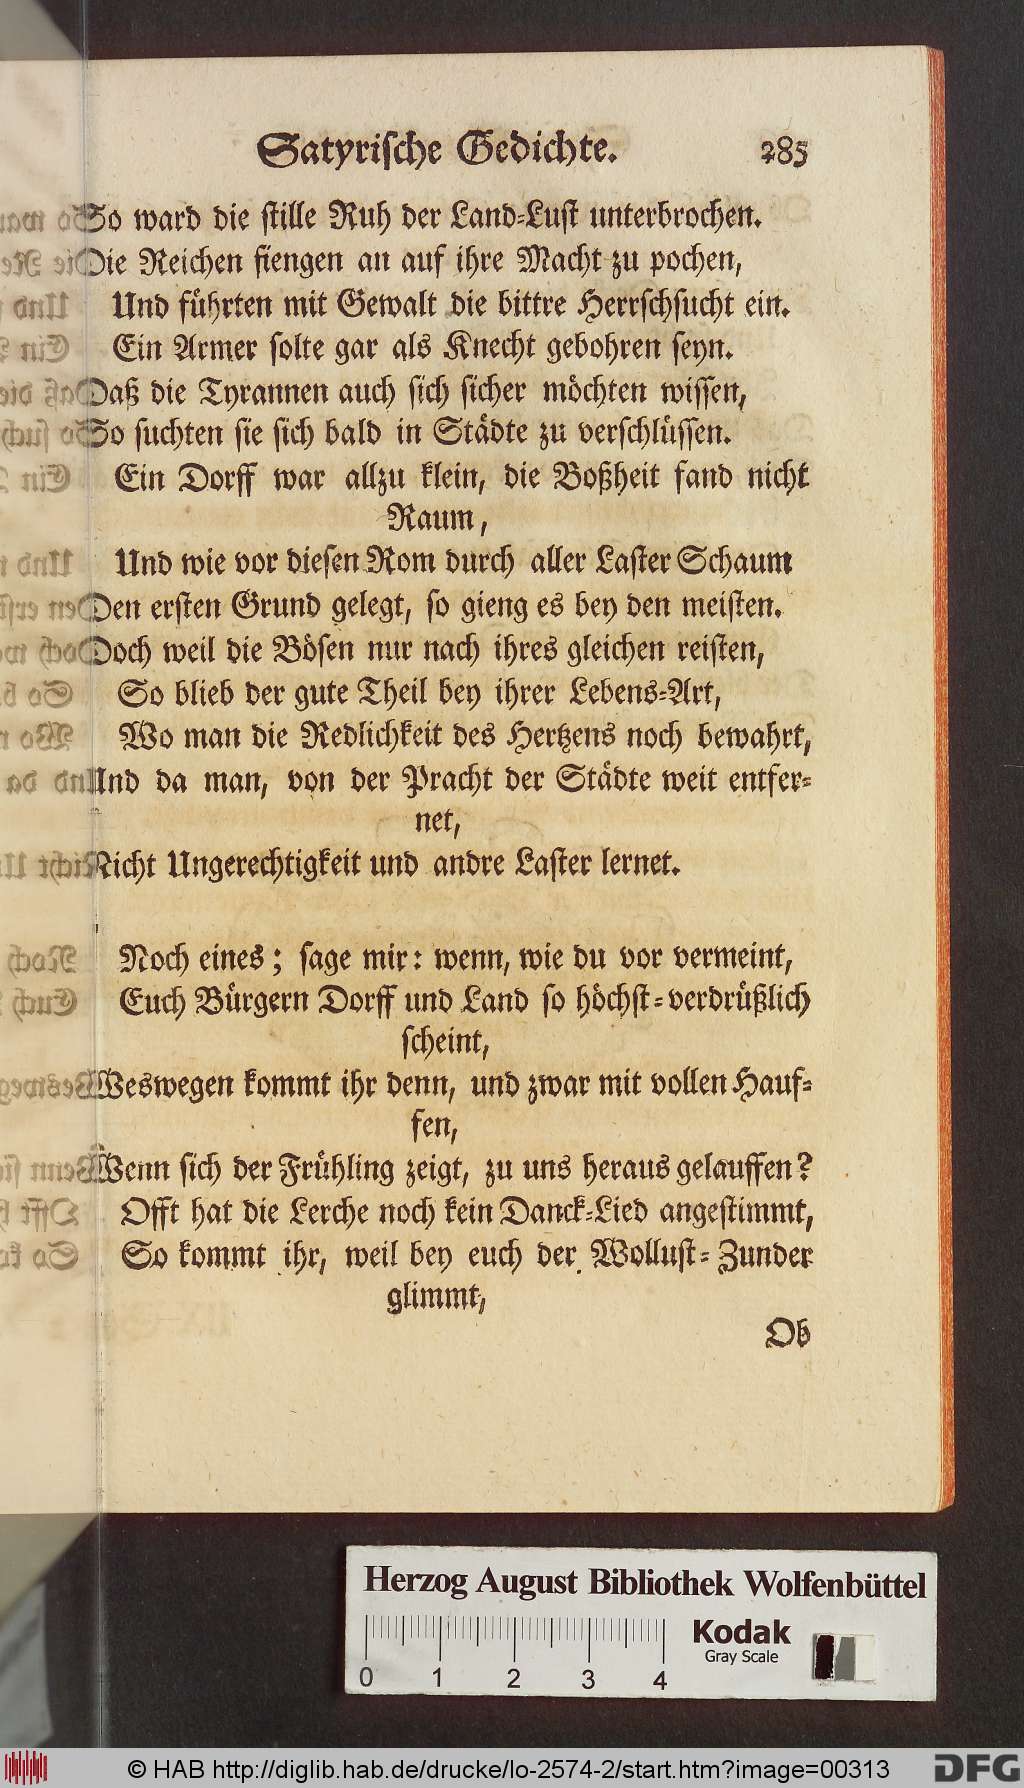 Satyrische Gedichte. 285
So ward die stille Ruh der Land-Lust unterbrochen.
Die Reichen fiengen an auf ihre Macht zu pochen,
Und führten mit Gewalt die bittre Herrschsucht ein.
Ein Armer solte gar als Knecht gebohren seyn.
Daß die Tyrannen auch sich sicher möchten wissen,
So suchten sie sich bald in Städte zu verschlüssen.
Ein Dorff war allzu klein, die Boßheit fand nicht
Raum,
Und wie vor diesen Rom durch aller Laster Schaum
Den ersten Grund gelegt, so gieng es bey den meisten.
Doch weil die Bösen nur nach ihres gleichen reisten,
So blieb der gute Theil bey ihrer Lebens-Art,
Wo man die Redlichkeit des Hertzens noch bewahrt,
Und da man, von der Pracht der Städte weit entfer-
net,
Nicht Ungerechtigkeit und andre Laster lernet.
Noch eines; sage mir: wenn, wie du vor vermeint,
Euch Bürgern Dorff und Land so höchst-verdrüßlich
scheint,
Weswegen kommt ihr denn, und zwar mit vollen Hauf-
fen,
Wenn sich der Frühling zeigt, zu uns heraus gelauffen?
Offt hat die Lerche noch kein Danck-Lied angestimmt,
So kommt ihr, weil bey euch der Wollust-Zunder
glimmt,
Ob
Herzog August Bibliothek Wolfenbüttel
Kodak
Gray Scale
0 1 2 3 4
© HAB http://diglib.hab.de/drucke/lo-2574-2/start.htm?image=00313
DFG